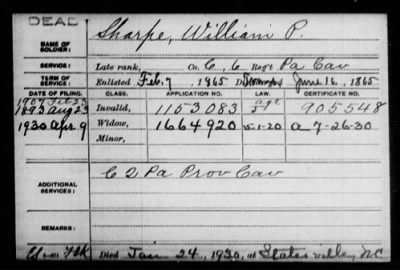 DEAD
NAME OF SOLDIER: Sharpe, William P.
SERVICE: Late rank, Co. C, 6 Reg't Pa Cav
TERM OF SERVICE: Enlisted Feb. 7, 1865 June 16, 1865
DATE OF FILING. CLASS. APPLICATION NO. LAW. CERTIFICATE NO.
1907 Feb 23 age
1893 Aug 23 Invalid, 1153083 905548
1930 Apr 9 Widow, 1664920 5-1-20 a 7-26-30
Minor,
ADDITIONAL SERVICES: C 2 Pa Prov Cav
REMARKS:
Died Jan 24, 1930, at Statesville, NC